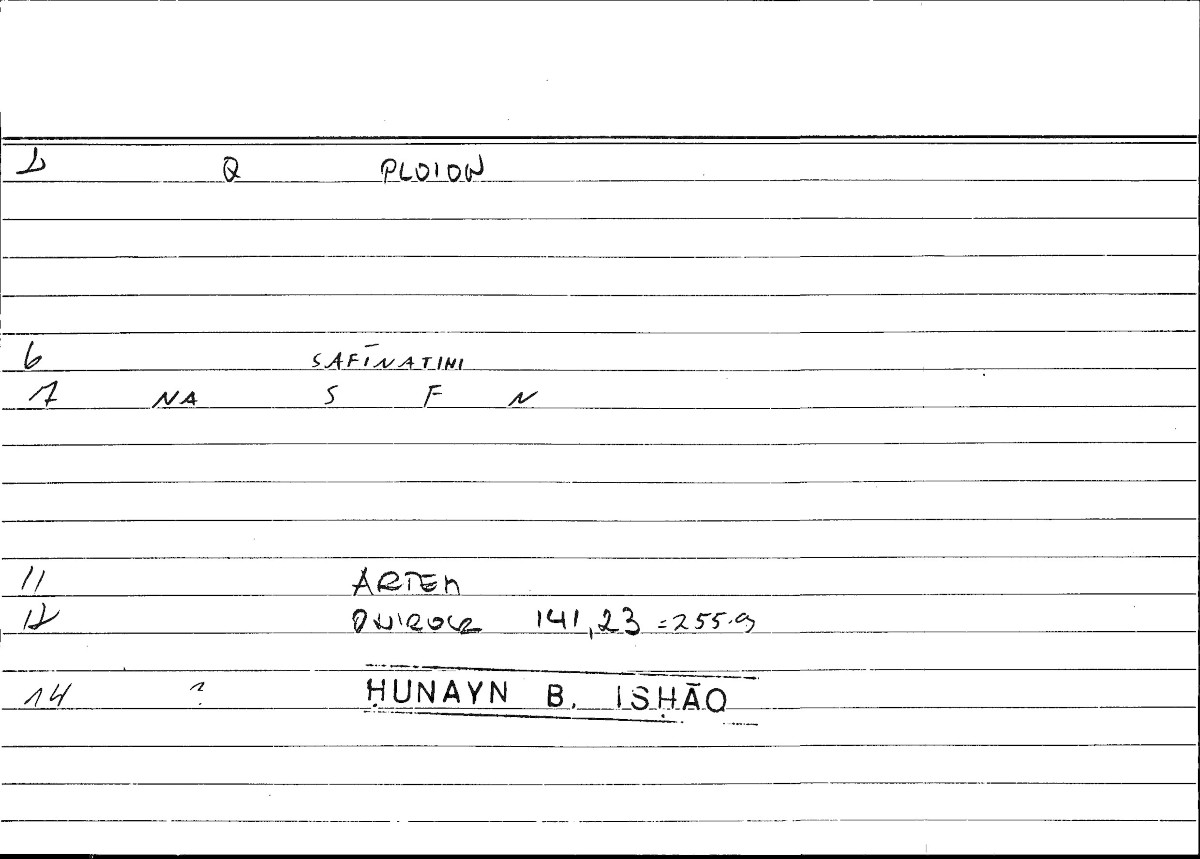 Q PLOION
6 SAFĪNATIHI
7 NA S F N
11 ARTEM
12 ONIROCR 141,23 =255.9
14 ? ḤUNAYN B. ISḤĀQ